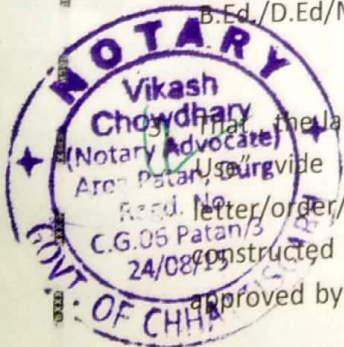 B.Ed./D.Ed/
NOTARY
Vikash
Chowdhary
(Notary Advocate)
Area Patan, Durg
Regd. No.
C.G.06 Patan/3
24/08/15
GOVT. OF
3) That, the la
Use" vide
letter/order/
constructed
approved by